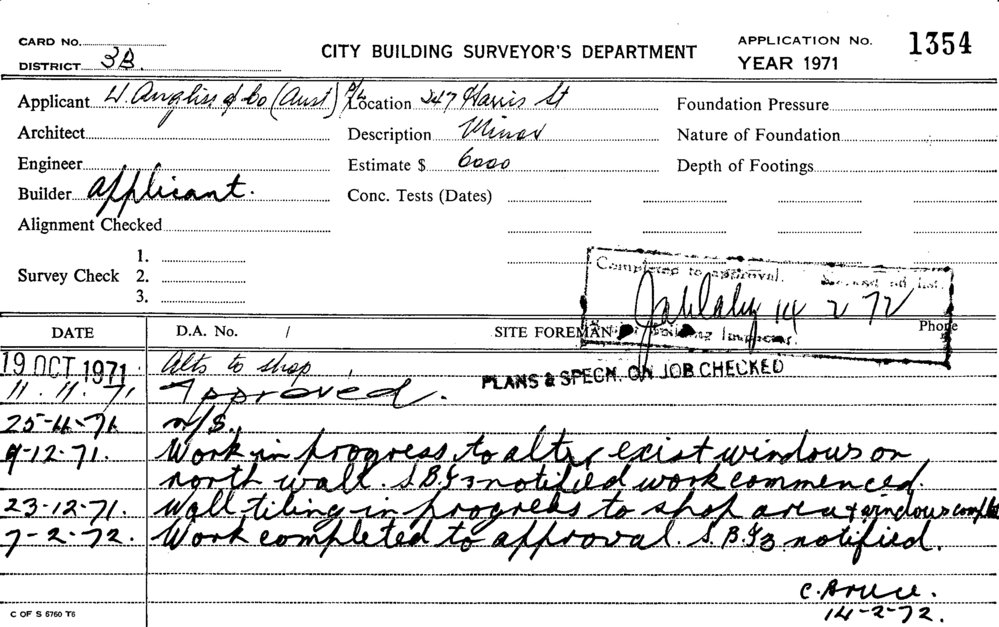 CARD No.
DISTRICT 3B.
CITY BUILDING SURVEYOR'S DEPARTMENT
APPLICATION No. 1354
YEAR 1971
Applicant W. Angliss & Co (Aust) P/L
Location 347 Harris St
Foundation Pressure
Architect
Description Minor
Nature of Foundation
Engineer
Estimate $ 6000
Depth of Footings
Builder applicant.
Conc. Tests (Dates)
Alignment Checked
Survey Check
1.
2.
3.
Completed to approval.
14 2 72
DATE
D.A. No. /
SITE FOREMAN
Phone
19 OCT 1971 Alts to shop
PLANS & SPECN. ON JOB CHECKED
11. 11. 71 Approved.
25-11-71. n/s.
9-12-71. Work in progress to alter exist windows on
north wall. notified work commenced.
23-12-71. Wall tiling in progress to shop area & windows
7-2-72. Work completed to approval. notified.
C. Bruce.
14-2-72.
C OF S 5760 T6